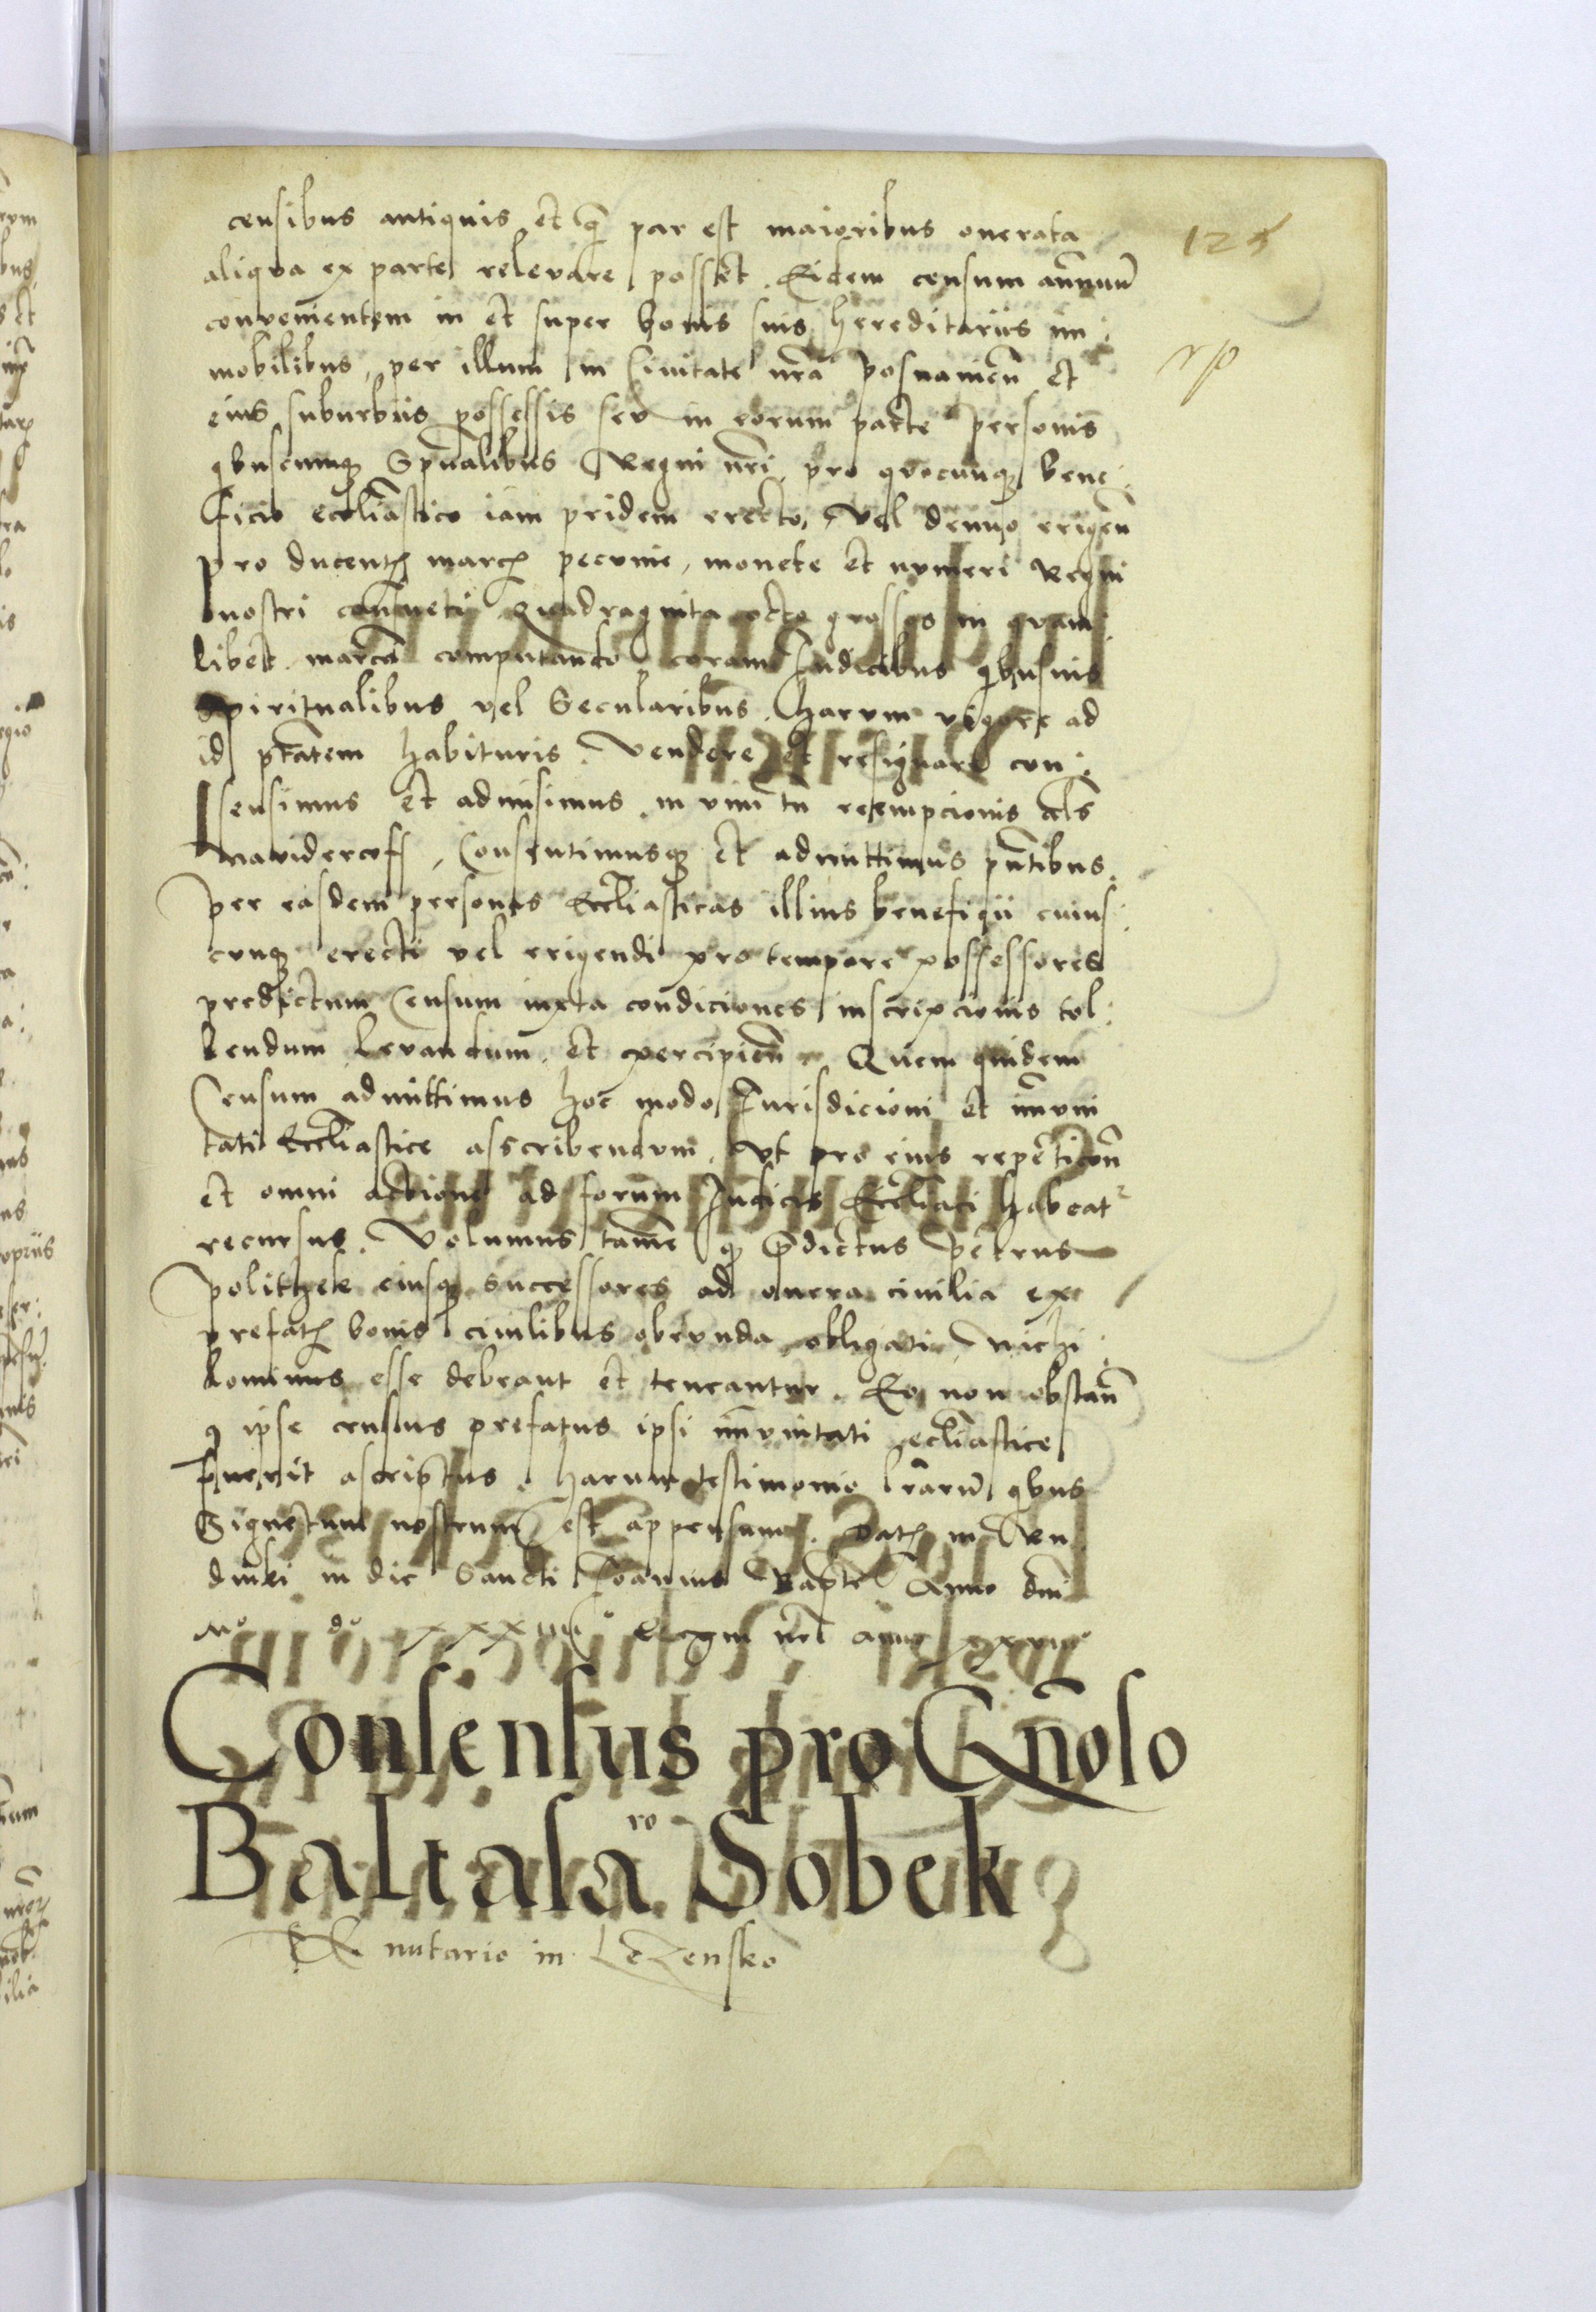 censibus antiquis et q̃ par est maioribus onerata
125
aliqua ex parte relevare posset. Eidem censum annuũ
convenientem in et super bonis suis hereditariis im:
mobilibus, per illum in Civitate nr̃a Posnanieñ et
rp
eius suburbiis possessis seu in eorum parte personis
qbuscumq; Spũalibus Regni nr̃i, pro quocunq; bene:
ficio eccliastico iam pridem erecto, vel denuo erigeñ
pro ducent[ marc[ pecunie, monete et numeri Regni
nostri consueti quadraginta octo grossos in quam
libet marcã computando, coram Iudicibus qbusuis
Spiritualibus vel Secularibus, harum vigore ad
id ptãtem habituris. Vendere et resignare con:
sensimus et admisimus, in vim tñ reempcionis als̃
na widercoff, Consentimusq; et admittimus pñtibus.
per easdem personas Eccliasticas illius beneficii cuius:
cunq; erecti vel erigendi pro tempore possessores
predictum Censum iuxta condiciones inscripcionis tol:
lendum levandum, et percipieñ. Quem quidem
Censum admittimus hoc modo Iurisdicioni et im̃uni
tati Eccliastice asscribendum, Vt pro eius repeticoñ
et omni actione ad forum Iudicis Eccliaci habeat
recursus. Volumus tamẽ q; p̃dictus Petrus
Polithek eiusq; successores ad onera civilia ex
prefat[ bonis civilibus obeunda obligati, nichi:
lominus esse debeant et teneantur. Eo non obstañ
q ipse census prefatus ipsi im̃unitati eccliastice
fuerit ascriptus. harum testimonio lr̃arũ qbus
Signetum nostrum est appensum. Dat[ in
in die Sancti Ioannis Bapte Anno dñi
Mº dº xxxiiiiº Regni nr̃i anno xxviii
Consensus pro Gñoso
Baltasaro Sobek
notario in